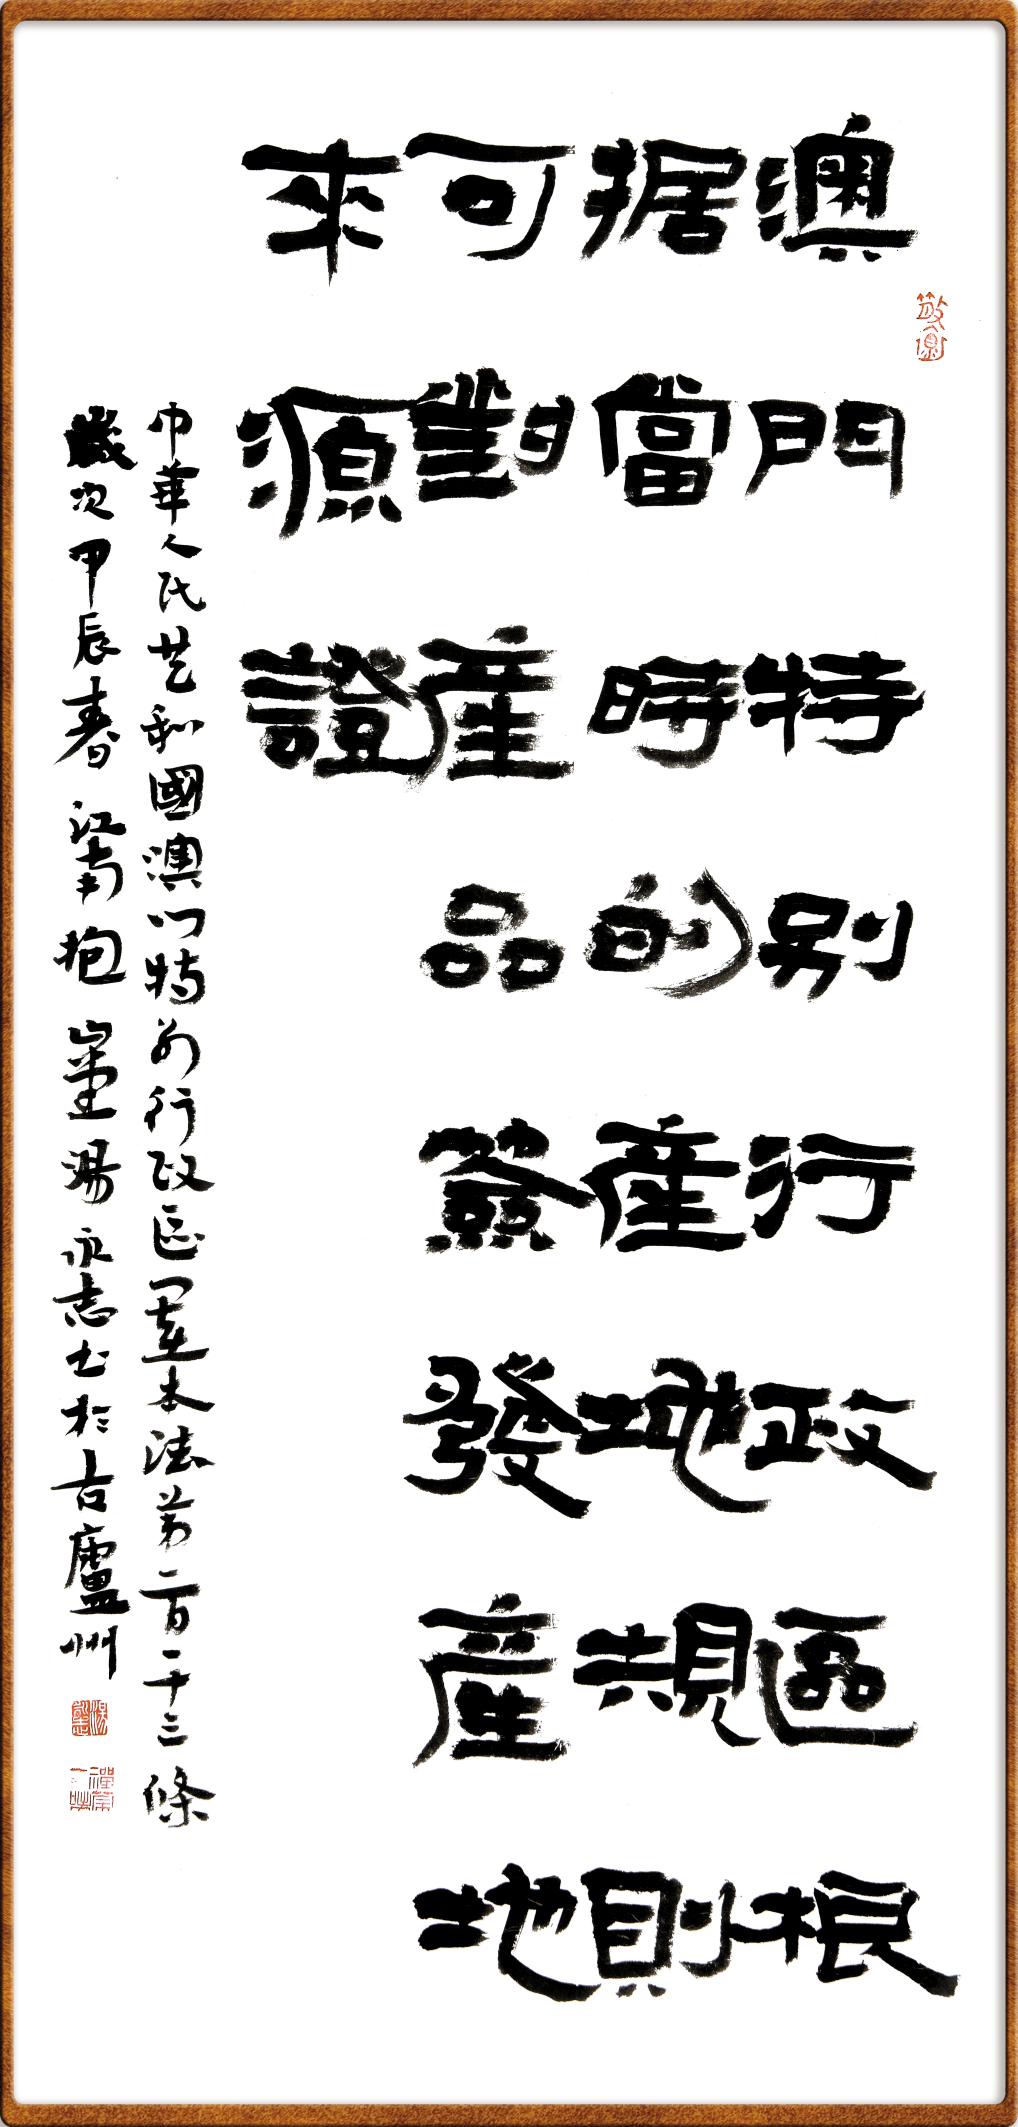 澳門特別行政區根
据當時的產地規則
可對產品簽發產地
來源證
中華人民共和國澳门特别行政区基本法第一百一十三條
歲次甲辰春江南抱湯永志书於古廬州